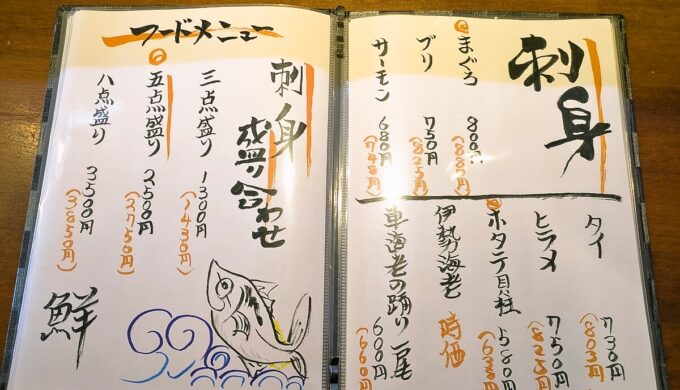 フードメニュー
刺身
盛り合わせ
三点盛り 1300円
(1430円)
五点盛り 2500円
(2750円)
八点盛り 3500円
(3850円)
鮮
刺身
まぐろ 800円
(880円)
ブリ 750円
(825円)
サーモン 680円
(748円)
タイ 730円
(803円)
ヒラメ 750円
(825円
ホタテ貝柱 580
伊勢海老 時価
車海老の踊り一尾 600円
(660円)